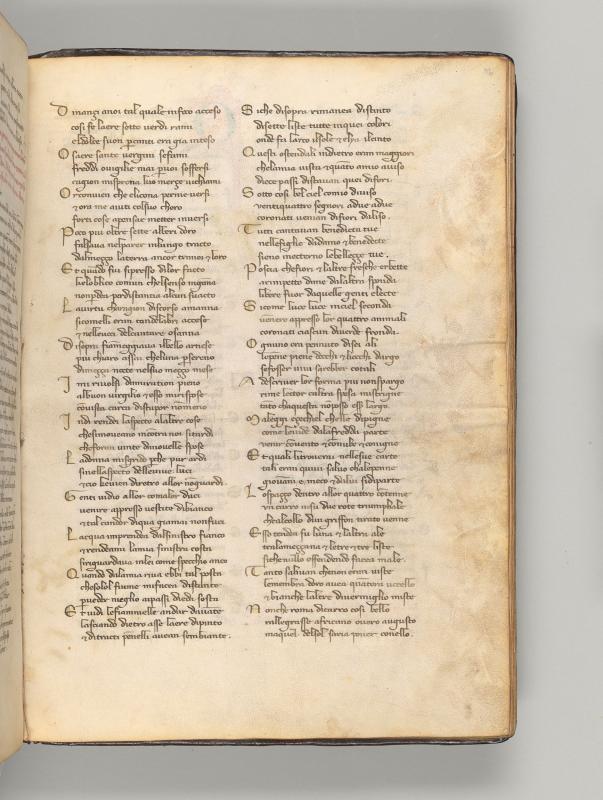 D inanci anoi tal quale infoco acceso
cosi fe laere sotto verdi rami
el dolce suon per canti era gia inteso
O sacre sante vergini sefami
freddi ovigilie mai per voi soffersi
cagion misprona luo merçe nechiami
O r convien che elicona per me versi
& ora me aiuti col suo choro
forti cose apensar metter inversi
P oco piu oltre sette alberi doro
falsava nelparer ilungo tracto
dalmeçço laterra ancor tranoi & loro
E t quando fui sipresso dilor facto
chelobbieto comun chelsenso ingana
non perdea per distantia alcun suo acto
L a virtu cha ragion discorso amanna
si comelli eran candelabri accese
& nellevoci delcantare osanna
D isopra fiameggiava ilbello arnese
piu chiaro assai cheluna per sereno
dimeçça nocte nelsuo meçço mese
I mi rivolsi damiration pieno
albuon virgilio & esso mi rispose
con vista carca distupor nomeno
I ndi rendei laspecto alaltre cose
chesimoveano incontra noi sitardi
che foran vinte da novelle spose
L a donna mi sgrido perche pur ardi
si nellaspecto delle vive luci
& cio kevien diretro allor nonguardi
G enti vidio allor comalor duci
venire appresso vestite dibianco
& tal candor di qua giamai nonfuci
L acqua imprendea dalsinistro fianco
& rendeami lamia sinistra costa
siriguardava inlei come specchio anco
Q uando dalamia riva ebbi tal posta
che solol fiume mi facea distante
per veder meglio aipassi diedi sosta
E t vidi le fiammelle andar davante
lasciando dietro asse laere dipinto
& ditracti pennelli avean sembiante.
S iche disopra rimanea distinto
disette liste tutte inquei colori
onde fa larco ilsole & cha ilcinto
Q uesti ostendali indietro eran maggiori
chelamia vista & quato amio aviso
diece passi distavan quei difori.
S otto cosi bel ciel comio diviso
ventiquattro segnori adue adue
coronati venian difiori daliso.
T utti cantavan benedicta tue
nellefiglie dadamo & benedecte
sieno inecterno lebelleççe tue.
P oscia chefiori & laltre fresche erbette
arimpetto dame dalaltra sponda
libere fuor daquelle genti electe
S icome luce luce inciel seconda
vennero appresso lor quattro animali
coronati ciascun diverde fronda.
O gnuno era pennuto disei ali
lepene piene docchi & liocchi dargo
sefosser vivi sarebber cotali
A descriver lor forma piu nonspargo
rime lector caltra spesa mistrigne
tato chaquesta noposso esser largo.
M a leggi eçechiel chelli dipigne
come livide dalafredda parte
venir convento & connube & conigne
E t quali litroverai nellesue carte
tali eran quivi salvo chalepenne
giovanni e meco & dalui sidiparte
L o spaçço dentro allor quattro contenne
vn carro insu due rote triumphale
chealcollo dun griffon tirato venne
E sso tendea su luna & laltra ale
tralameççana & letre & tre liste
sichenulla offendendo facea male.
T anto salivan chenon eran viste
lemembra doro avea quatera uccello
& bianche laltre divermiglio miste
N onche roma dicarro cosi bello
rallegrasse africano overo augusto
maquel delsol saria pover conello.